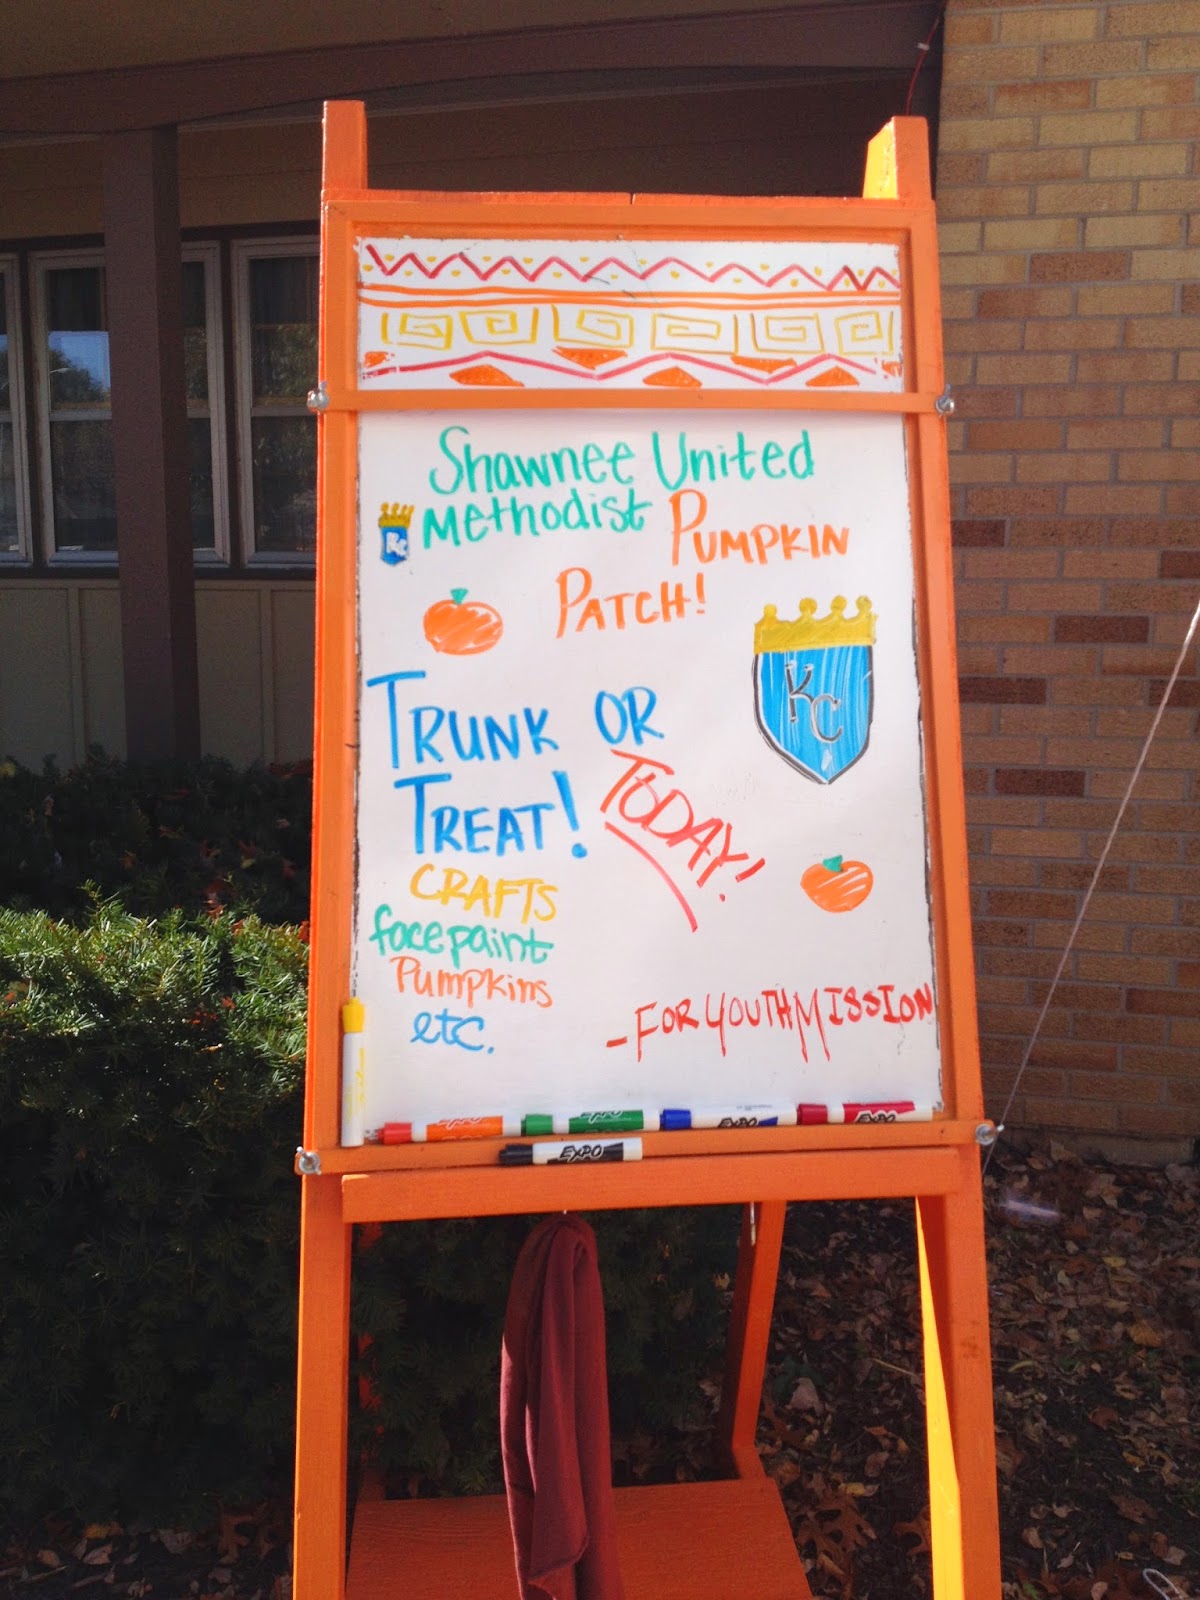 Shawnee United
Methodist PUMPKIN
KC
PATCH!
KC
TRUNK OR
TREAT!
TODAY!
CRAFTS
facepaint
Pumpkins
etc.
-FOR YOUTH MISSION
EXPO
EXPO
EXPO
EXPO
EXPO